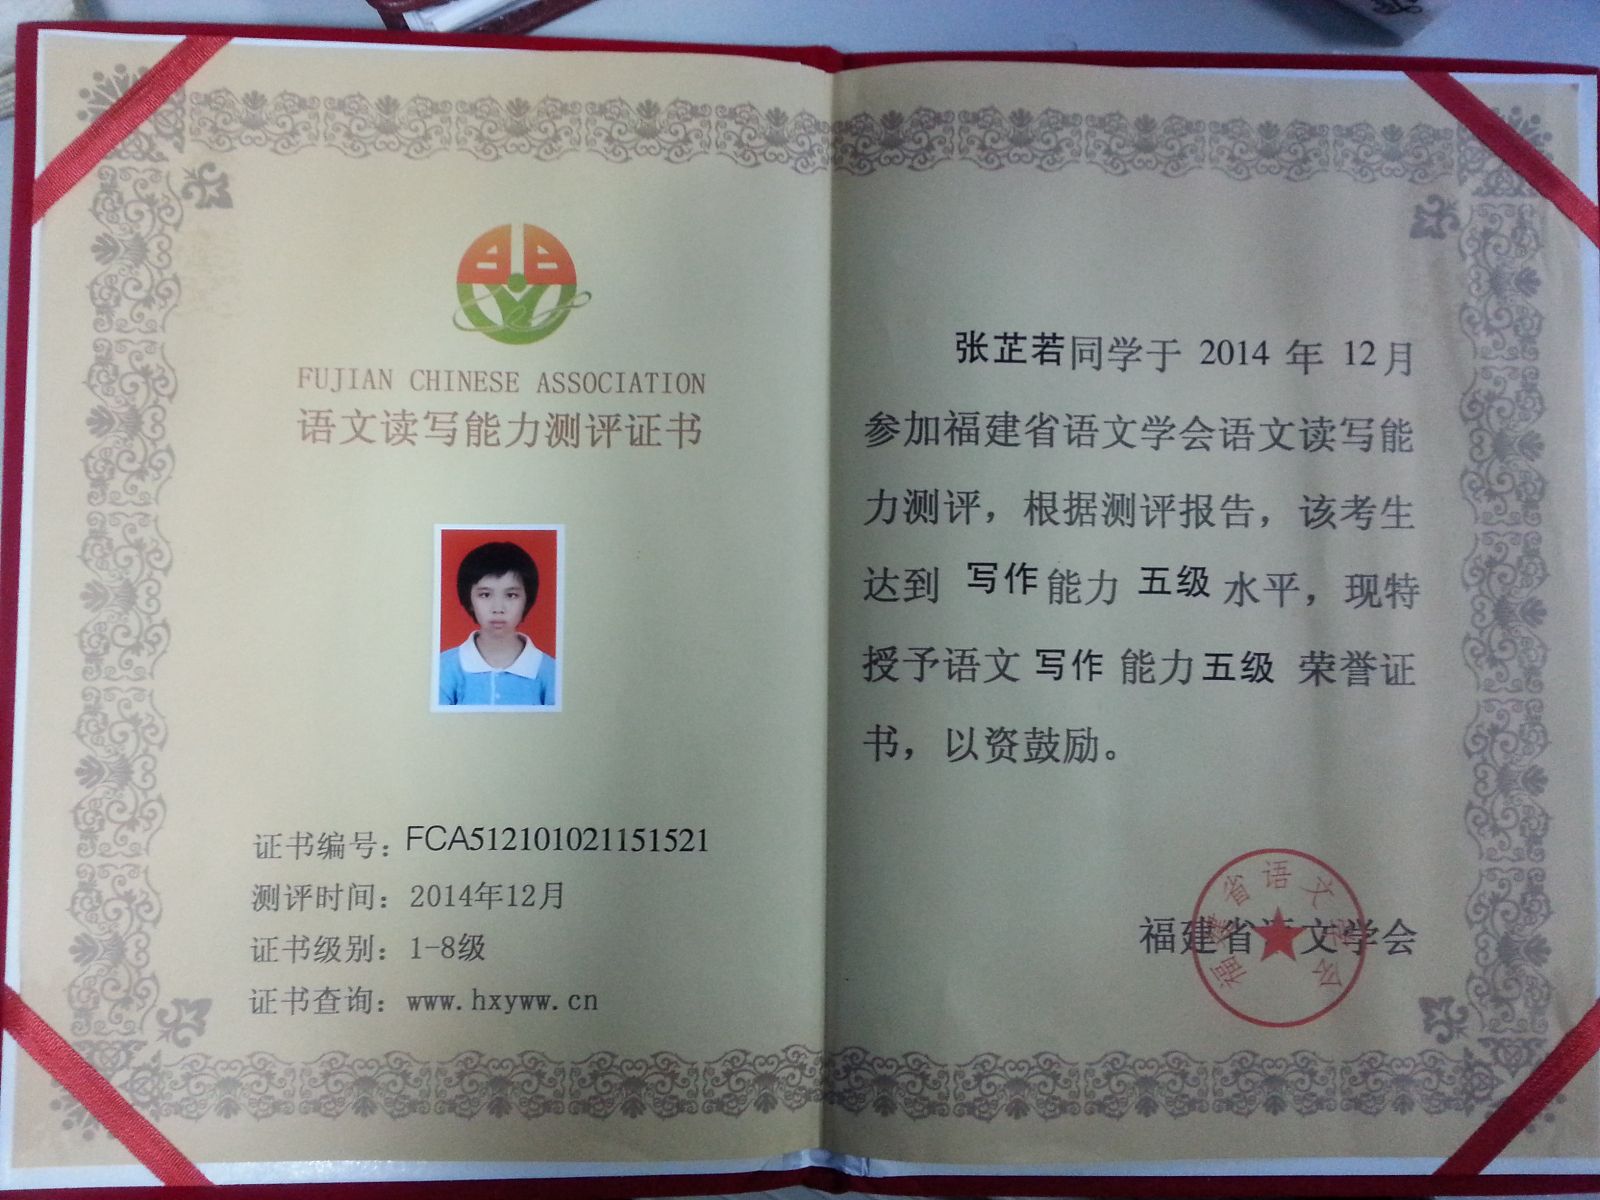 FUJIAN CHINESE ASSOCIATION
语文读写能力测评证书
证书编号：FCA512101021151521
测评时间：2014年12月
证书级别：1-8级
证书查询：www.hxyww.cn
张芷若同学于 2014 年 12月
参加福建省语文学会语文读写能
力测评，根据测评报告，该考生
达到 写作能力 五级 水平，现特
授予语文 写作 能力五级 荣誉证
书，以资鼓励。
福建省语文学会
福建省语文学会